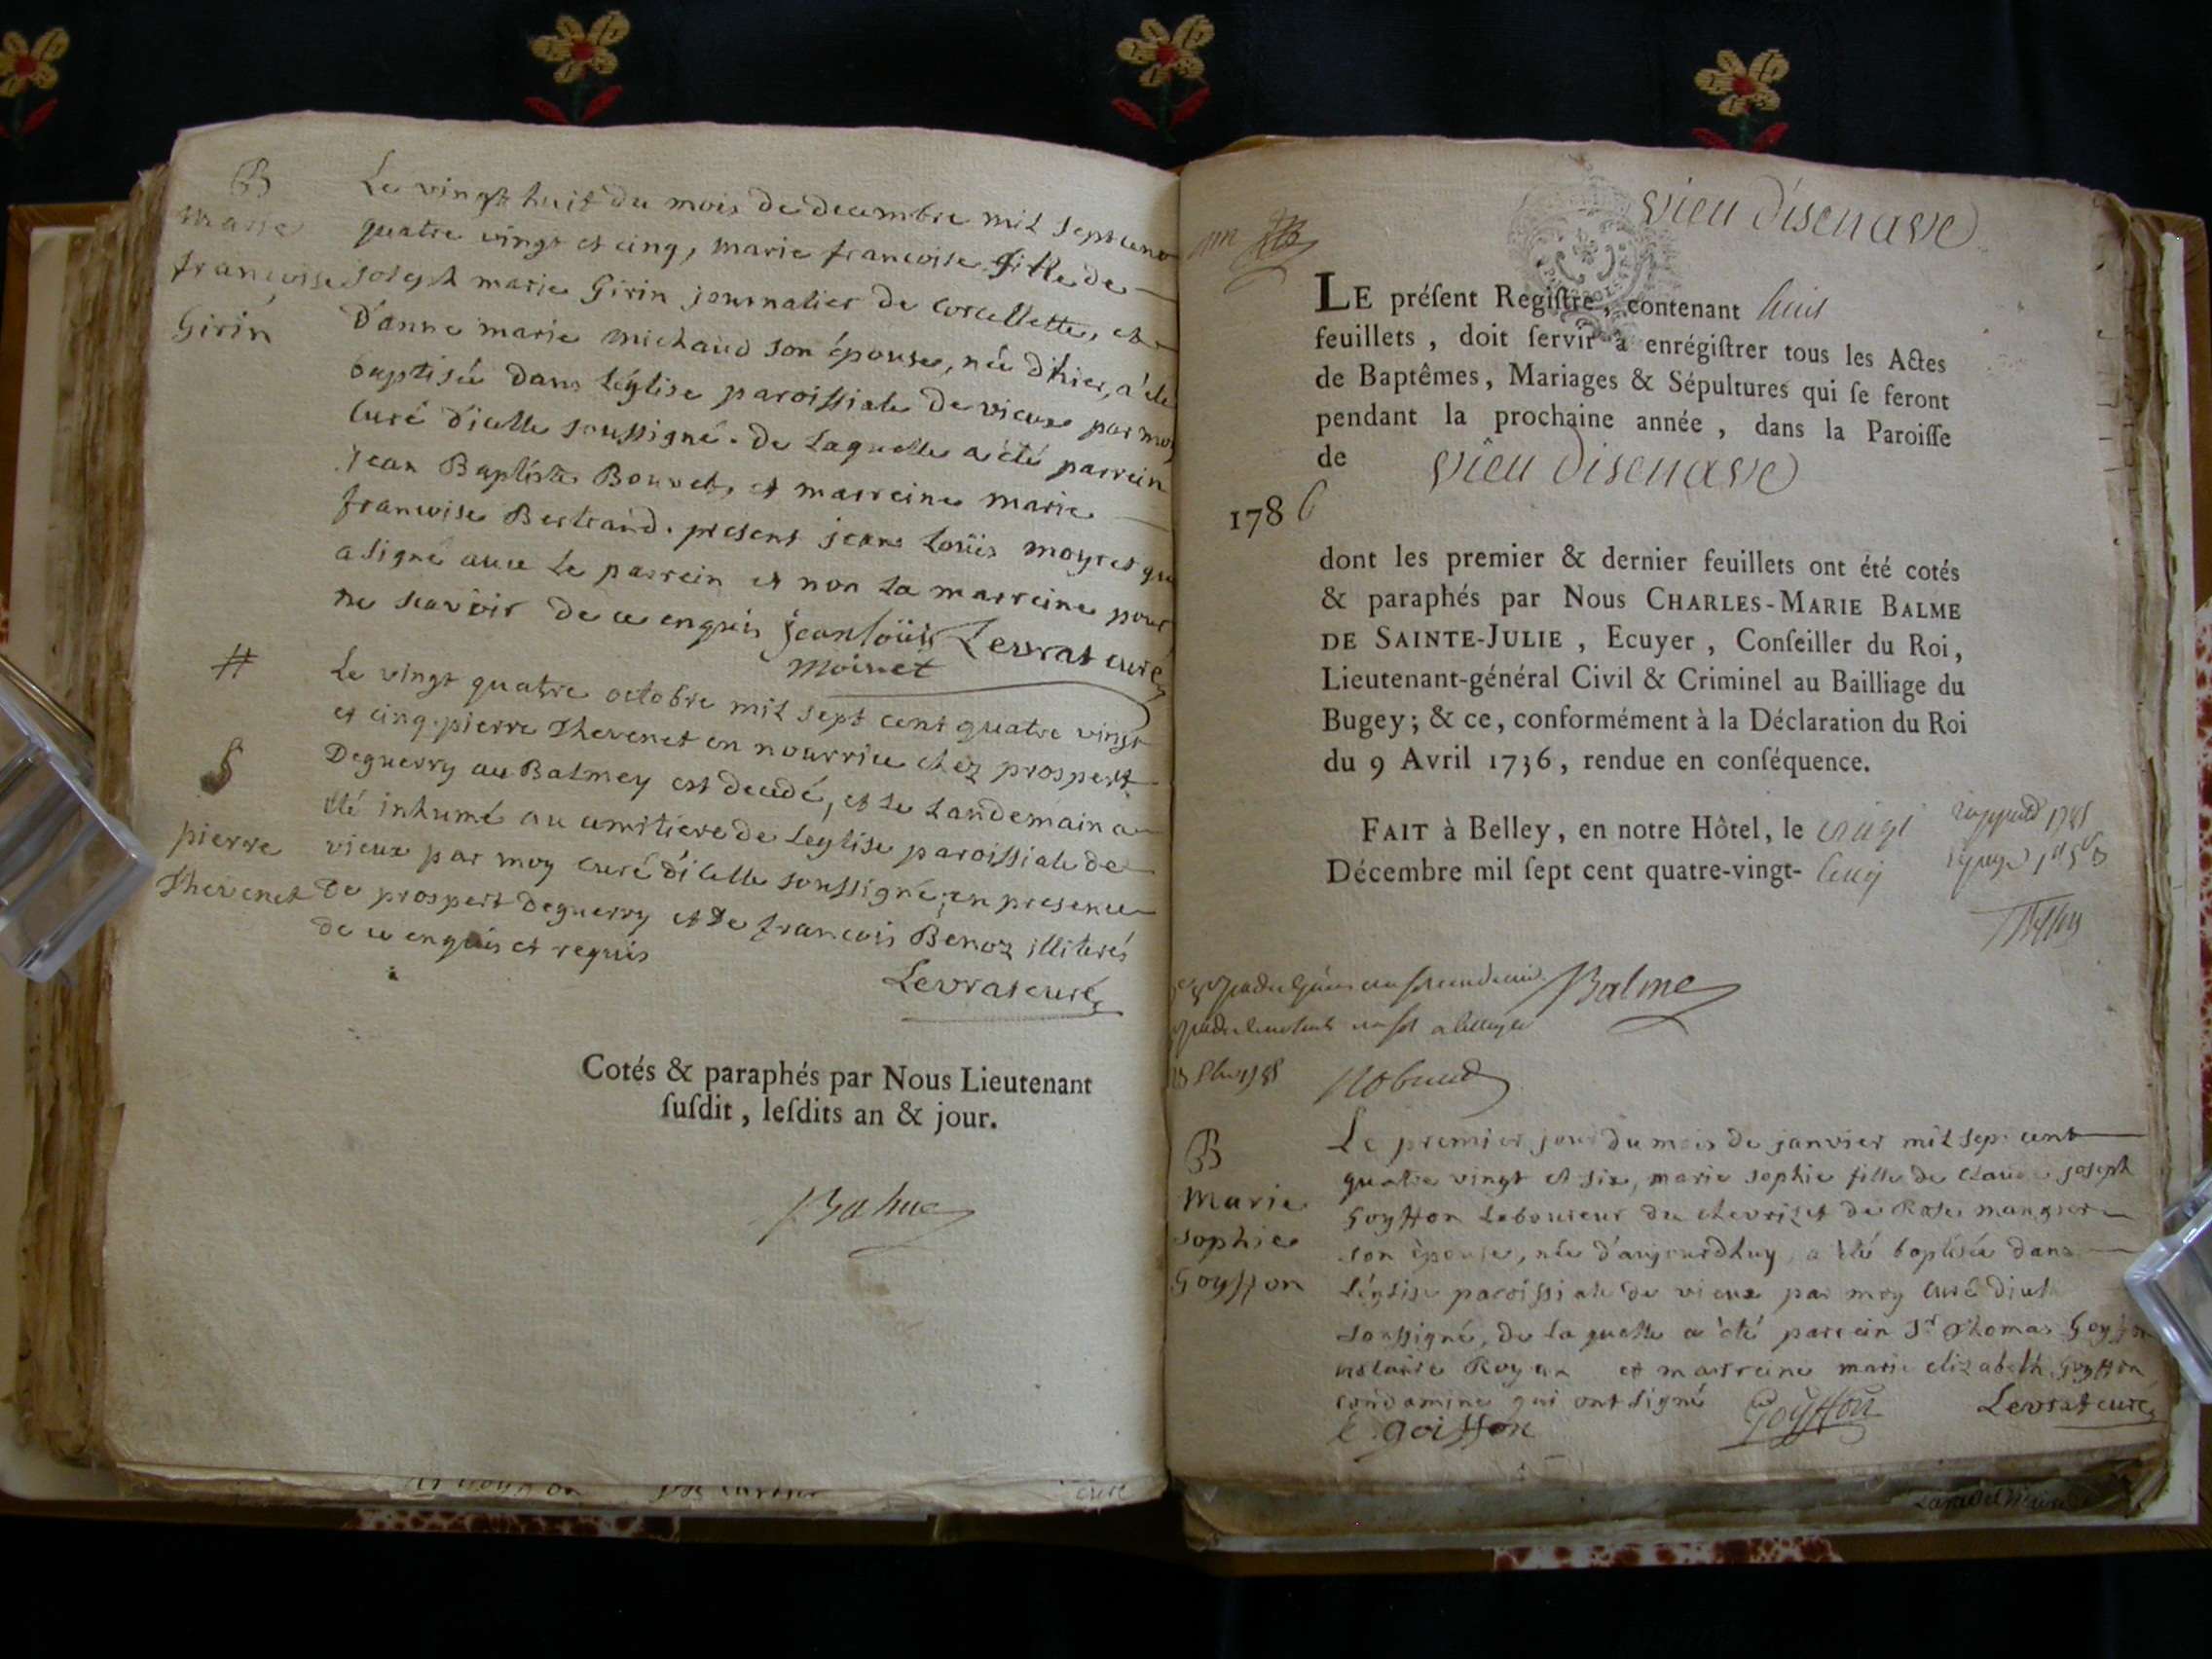 B
Le vingt huit du mois de decembre mil sept cent
Marie
quatre vingt et cinq, marie francoise fille de
francoise
joseph marie Girin journalier de corcellette, et
Girin
d'anne marie michaud son épouse, née d'hier, a été
baptisée dans l'église paroissiale de vieux par moy
curé d'icelle soussigné. de laquelle a été parrein
jean Baptiste Bouvet, et marreine marie
francoise Bertrand. present jean Loüis moynet qui
a signé avec le parrein et non la marreine pour
ne scavoir de ce enquis jean loüis Levrat curé
moinet
#
Le vingt quatre octobre mil sept cent quatre vingt
et cinq. pierre Thevenet en nourrice chéz prospert
S
Deguerry au Balmey est decedé, et le landemain a
été inhumé au cemitiere de Leglise paroissiale de
pierre
vieux par moy curé d'icelle soussigné, en presence
Thevenet
de prospert deguerry et de francois Benoz illiterés
de ce enquis et requis
Levrat curé
Cotés & paraphés par Nous Lieutenant
ſuſdit, leſdits an & jour.
Balme
vieu disenave
LE préſent Regiſtre, contenant huit
feuillets, doit ſervir à enrégiſtrer tous les Actes
de Baptêmes, Mariages & Sépultures qui ſe feront
pendant la prochaine année, dans la Paroiſſe
de vieu disenave
1786
dont les premier & dernier feuillets ont été cotés
& paraphés par Nous CHARLES-MARIE BALME
DE SAINTE-JULIE, Ecuyer, Conſeiller du Roi,
Lieutenant-général Civil & Criminel au Bailliage du
Bugey; & ce, conformément à la Déclaration du Roi
du 9 Avril 1736, rendue en conſéquence.
FAIT à Belley, en notre Hôtel, le vingt
Décembre mil ſept cent quatre-vingt- cinq
Balme
B
Le premier jour du mois de janvier mil sept cent
quatre vingt et six, marie sophie fille de claude joseph
Marie
Goyffon laboureur du chevrizet de Rose mangier
sophie
son épouse, née d'aujourdhuy, a été baptisée dans
Goyffon
l'église paroissiale de vieux par moy curé d'icelle
soussigné, de laquelle a été parrein Sr Thomas Goyffon
notaire Royal et marreine marie elizabeth Goyffon
condamine qui ont signé Goyffon Levrat curé
e goiffon